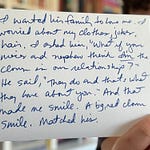 I wanted his family to love me. I
worried about my clothes, jokes,
hair. I asked him, "What if your
nieces and nephews think I'm the
clown in our relationship?"
He said, "They do and that's what
they love about you." And that
made me smile. A big red clown
smile. Matched his.